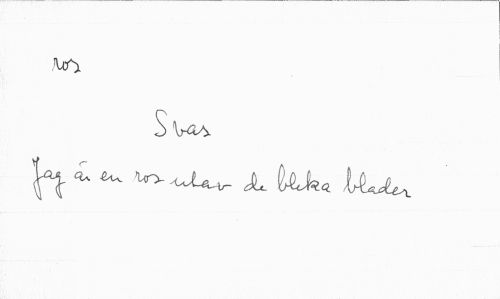 ros
Svar
Jag är en ros utav de bleka blader